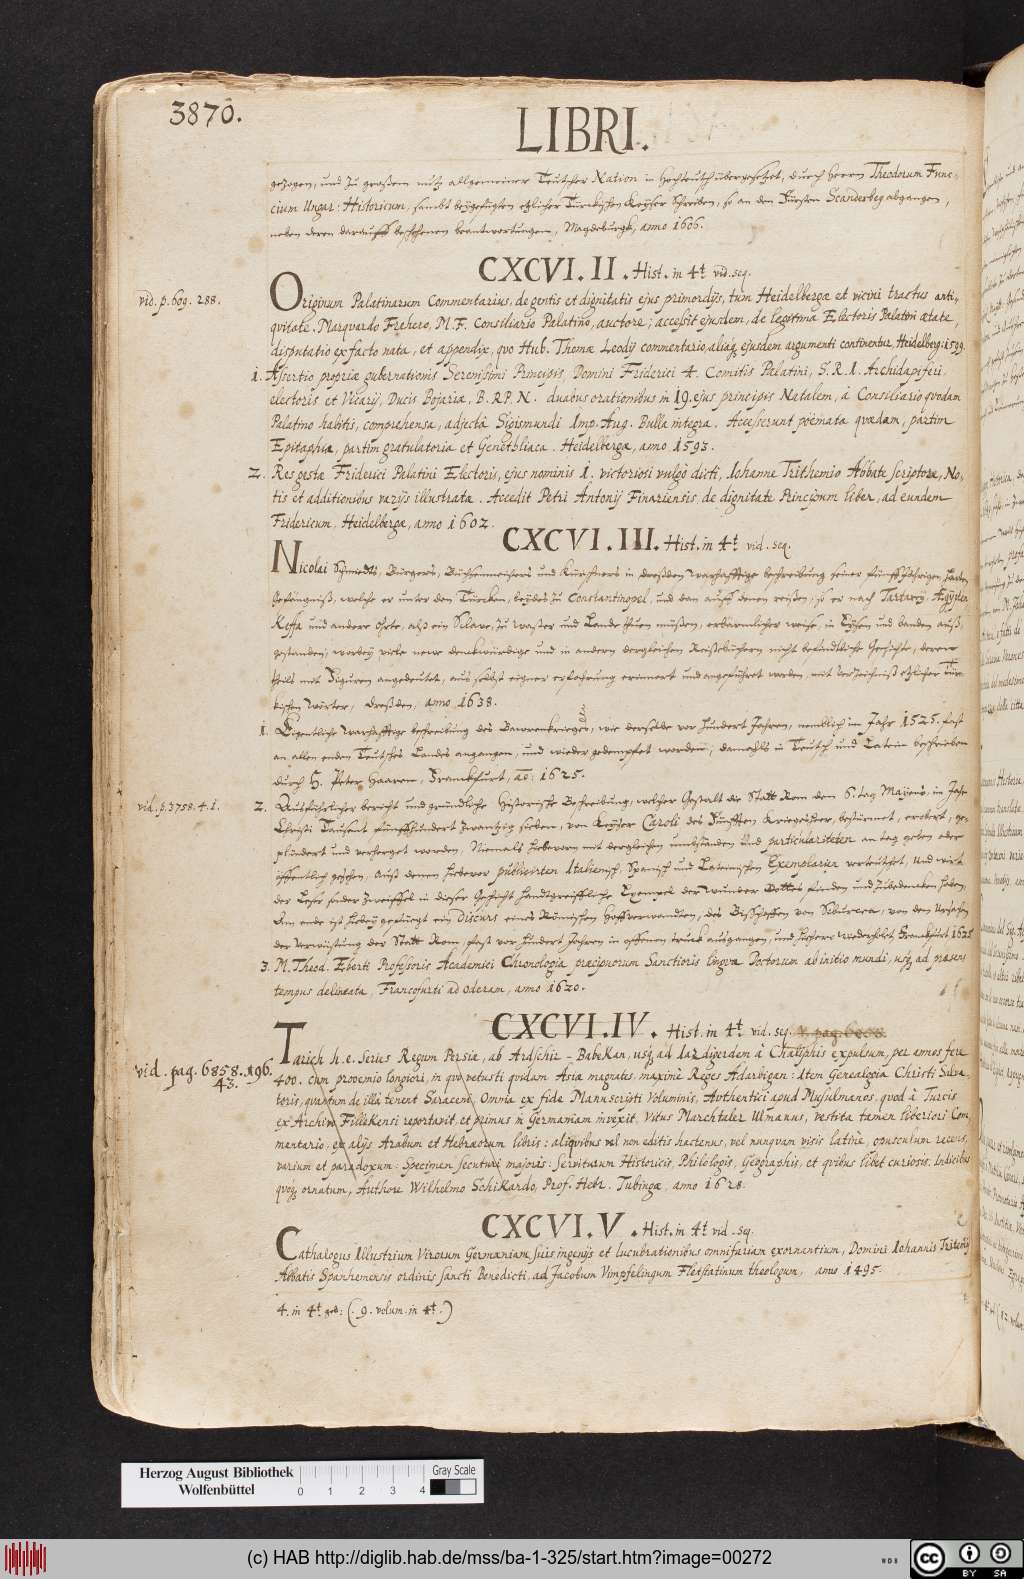 3870.
LIBRI.
gezogen, und zu großem nutz allgemeiner Teutscher Nation in Hochteutsch übergesetzet, durch herrn Theodorum Func-
cium Ungar: Historicum, sambt beygefügten etzlicher Türckischen Keyser Schreiben, so an den Fürsten Scanderbeg abgangen,
neben deren darauff beschehenen beantwortungen, Magdeburgk, anno 1606.
CXCVI. II. Hist. in 4t. vid. seq.
vid. p. 609. 288.
Originum Palatinarum Commentarius, de gentis et dignitatis ejus primordijs, tum Heidelbergæ et vicini tractus anti-
quitate. Marquardo Frehero, M. F. Consiliario Palatino, auctore; accessit ejusdem, de legitima Electoris Palatini ætate,
disputatio ex facto nata, et appendix, quo Hub. Thomæ Leodij commentario, aliaq. ejusdem argumenti continentur, Heidelberg. 1599.
1. Assertio propriæ gubernationis Serenissimi Principis, Domini Friderici 4. Comitis Palatini, S. R. I. Archidapiferi,
electoris et Vicarij, Ducis Bojariæ, B. RP. N. duabus orationibus in 19. ejus principis Natalem, à Consiliario quodam
Palatino habitis, comprehensa, adjectâ Sigismundi Imp. Aug. Bulla integra. Accesserunt poëmata quædam, partim
Epitaphia, partim gratulatoria et Genethliaca. Heidelbergæ, anno 1593.
2. Res gestæ Friderici Palatini Electoris, ejus nominis I. victoriosi vulgò dicti, Iohanne Trithemio Abbate scriptore, No-
tis et additionibus varijs illustrata. Accedit Petri Antonij Finariensis, de dignitate Principum liber, ad eundem
Fridericum. Heidelbergæ, anno 1602.
CXCVI. III. Hist. in 4t. vid. seq.
Nicolai Schmidts, Bürgers, Büchsenmeisters und Kürschners in Dreßden warhafftige beschreibung seiner fünff Jährigen harten
Gefängniß, welche er unter den Türcken, beydes zu Constantinopel, und dan auff denen reißen, so er nach Tartarey, Ægypten
Keffa und andere ohrte, alß ein Sclave, zu Waßer und Lande thuen müßen, erbärmlicher weise, in Eysen und banden auß-
gestanden; worbey viele newe denkwürdige und in andern dergleichen Reißebüchern nicht befindtliche Geschichte, deren
theils mit Figuren angedeutet, aus selbst eigner erfahrung erinnert und angeführet werden, mit Verzeichniß etzlicher Tür-
kischen Wörter, Dreßden, anno 1638.
1. Eigentliche warhafftige beschreibung des Bawrenkrieges, wie derselbe vor hundert Jahren, nemblich im Jahr 1525. fast
an allen enden Teutsches Landes angangen, und wieder gedempfet worden; damahls in Teutsch und Latein beschrieben
durch H. Peter Haaren, Franckfurt, ao: 1625.
vid. p. 3758. 4. 1.
2. Außführlicher bericht und gründliche Historische Beschreibung, welcher Gestalt die Statt Rom den 6. tag Mayens, im Jahr
Christi Tausent fünffhundert zwantzig sieben, von Keyser Caroli des Fünfften Kriegesheer, bestürmet, erobert, ge-
plündert und verherget worden, Niemals hiebevorn mit dergleichen umbständen Und particulariteten an tag geben oder
öffentlich gesehen, auß denen hiebevor publicirten Italienisch, Spanisch und Lateinischen Exemplarien verteutschet, Und wirt
der Leser sonder Zweiffel in dieser Geschicht handtgreiffliche Exempel der wunder Gottes finden und zubedencken haben,
Am ende ist hiebey gefüegt ein Discurs eines Römischen Hoffverwandten, des Bischoffen von Siburcea, von den Ursachen
der Verwüstung der Statt Rom, fast vor hundert Jahren in offenen truck ausgangen, und hiehero wiederholet, Franckfurt 1625
3. M. Theod. Eberti Professoris Academici Chronologia præcipuorum Sanctioris linguæ Doctorum ab initio mundi, usq. ad præsens
tempus delineata, Francofurti ad Oderam, anno 1620.
CXCVI. IV. Hist. in 4t. vid. seq.
vid. pag. 6858. 196.
43.
Tarich h. e. Series Regum Persiæ, ab Ardschir-Babekan, usq. ad Iazdigerdem à Chaliphis expulsum, per annos fere
400. cum prooemio longiori, in quo vetusti quidam Asiæ magnates, maximè Reges Adarbigan: Item Genealogia Christi Salva-
toris, quantum de illâ tenent Saraceni. Omnia ex fide Manuscripti Voluminis, Authentici apud Musulmanos, quod à Turcis
ex Archivo Fillekensi reportavit et primus in Germaniam invexit, Vitus Marchtaler Ulmanus, vestita tamen liberiori Com-
mentario, ex alijs Arabum et Hebræorum libris: aliquibus vel non editis hactenus, vel nunquam visis latinè, opusculum recens,
varium et paradoxum: Specimen secuturi majoris: Servitutum Historicis, Philologis, Geographis, et quibus libet curiosis, Indicibus
quoq. ornatum, Authore Wilhelmo Schikardo, Prof. Hebr. Tubingæ, anno 1628.
CXCVI. V. Hist. in 4t. vid. seq.
Cathalogus Illustrium Virorum Germaniam suis ingenijs et lucubrationibus omnifariam exornantium, Domini Iohannis Tritemij
Abbatis Spanhemensis ordinis sancti Benedicti, ad Jacobum Vimpfelingum Sletstatinum theologum, anno 1495.
4. in 4t. geb: (. 9. volum. in 4t.)
Herzog August Bibliothek
Wolfenbüttel
0 1 2 3 4
Gray Scale
(c) HAB http://diglib.hab.de/mss/ba-1-325/start.htm?image=00272
WDB
cc BY SA